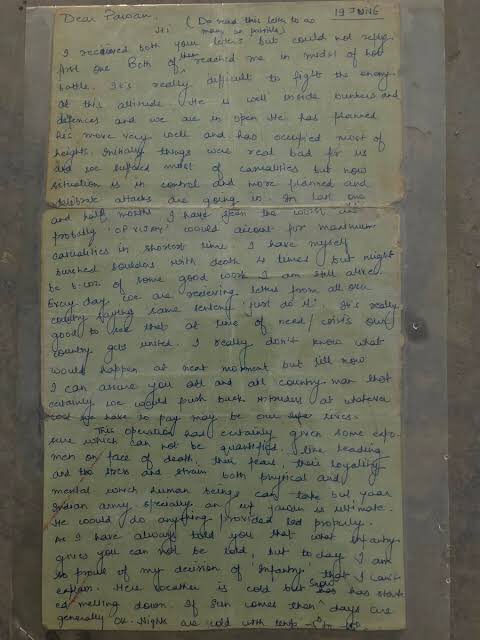 Dear Pawan,
19 JUNE
Hi (Do read this letter to as
many as possible)
I received both your letters but could not reply
first one. Both of them reached me in midst of hot
battle. It's really difficult to fight the enemy
at this altitude. He is well inside bunkers and
defences and we are in open. He has planned
his move very well and has occupied most of
heights. Initially things were real bad for us
and we suffered most of casualties but now
situation is in control and more planned and
deliberate attacks are going in. In last one
and half months I have seen the worst
probably 'OP VIJAY' would account for maximum
casualties in shortest time. I have myself
brushed shoulders with death times but might
be b'coz of some good work I am still alive
Every day we are recieving letters from all over
country saying same sentence 'just do it'. It's really
good to see that at time of need/crisis our
country gets united. I really don't know what
would happen at next moment but till now
I can assure you all and all country man that
certainly we would push back intruders at whatever
cost we have to pay may be our lives.
This operation has certainly given some expo-
sure which can not be quantified, like leading
men on face of death, their fears, their loyality
and the stress and strain both physical and
mental which human beings can take but yaar
Indian army specially an inf jawan is ultimate.
He would do anything provided led properly.
As I have always told you that what infantry
gives you can not be told, but today I am
so proud of my decision of 'Infantry' that I can't
explain. Here weather is cold but snow has start
ed melting down. If sun comes then days are
generally OK. Nights are cold with temp -5° to